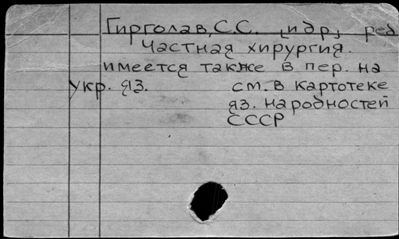 Гирголав, С.С. [и др.] ред.
Частная хирургия.
имеется также в пер. на
укр. яз. см. в картотеке
яз. народностей
СССР